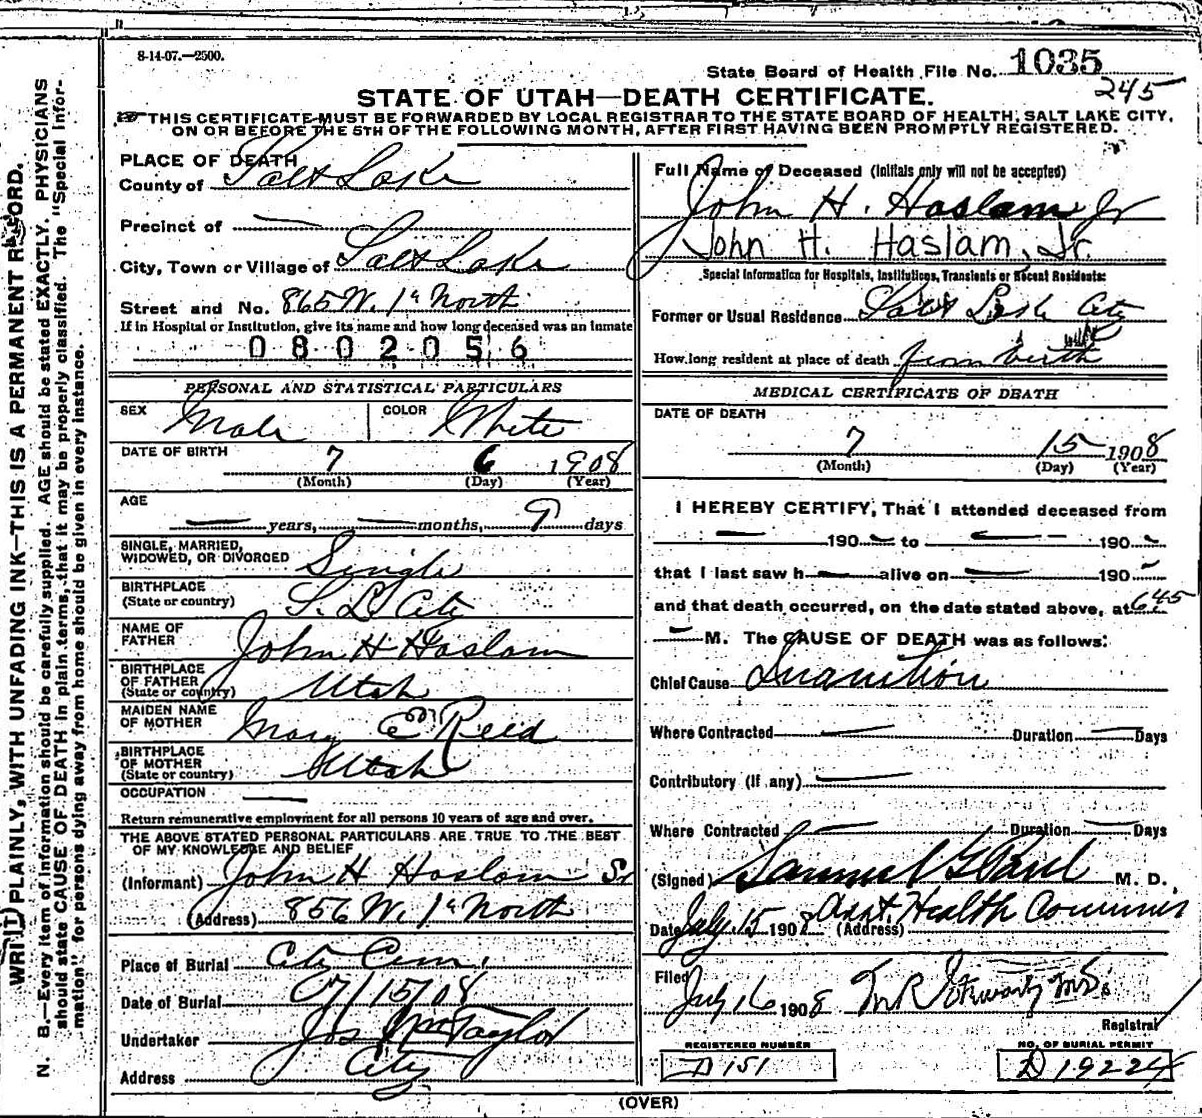 8-14-07.—2500.
State Board of Health File No. 1035
245
STATE OF UTAH—DEATH CERTIFICATE.
THIS CERTIFICATE MUST BE FORWARDED BY LOCAL REGISTRAR TO THE STATE BOARD OF HEALTH, SALT LAKE CITY,
ON OR BEFORE THE 5TH OF THE FOLLOWING MONTH, AFTER FIRST HAVING BEEN PROMPTLY REGISTERED.
PLACE OF DEATH
County of Salt Lake
Precinct of —
City, Town or Village of Salt Lake
Street and No. 865 W. 1st North
If in Hospital or Institution, give its name and how long deceased was an inmate
0802056
PERSONAL AND STATISTICAL PARTICULARS
SEX Male COLOR White
DATE OF BIRTH 7 6 1908
(Month) (Day) (Year)
AGE
— years, — months, 9 days
SINGLE, MARRIED,
WIDOWED, OR DIVORCED Single
BIRTHPLACE
(State or country) S. L. City
NAME OF
FATHER John H Haslam
BIRTHPLACE
OF FATHER
(State or country) Utah
MAIDEN NAME
OF MOTHER Mary E Reed
BIRTHPLACE
OF MOTHER
(State or country) Utah
OCCUPATION —
Return remunerative employment for all persons 10 years of age and over.
THE ABOVE STATED PERSONAL PARTICULARS ARE TRUE TO THE BEST
OF MY KNOWLEDGE AND BELIEF
(Informant) John H Haslam Sr
(Address) 856 W. 1st North
Place of Burial City Cem.
Date of Burial 07/15/08
Undertaker Jos Wm Taylor
Address City
Full Name of Deceased (Initials only will not be accepted)
John H. Haslam Jr
John H. Haslam, Jr.
Special Information for Hospitals, Institutions, Transients or Recent Residents:
Former or Usual Residence Salt Lake City
How long resident at place of death from birth
MEDICAL CERTIFICATE OF DEATH
DATE OF DEATH
7 15 1908
(Month) (Day) (Year)
I HEREBY CERTIFY, That I attended deceased from
— 190 — to — 190 —
that I last saw h — alive on — 190 —
and that death occurred, on the date stated above, at 645
— M. The CAUSE OF DEATH was as follows:
Chief Cause Inanition
Where Contracted — Duration — Days
Contributory (If any) —
Where Contracted — Duration — Days
(Signed) Samuel G Paul M. D.
Date July 15 1908 (Address) Asst. Health Commis
Filed
July 16 1908
Registrar
REGISTERED NUMBER
D 151
NO. OF BURIAL PERMIT
D 19224
(OVER)
PLAINLY, WITH UNFADING INK—THIS IS A PERMANENT RECORD.
N. B.—Every item of information should be carefully supplied. AGE should be stated EXACTLY. PHYSICIANS
should state CAUSE OF DEATH in plain terms, that it may be properly classified. The "Special Infor-
mation" for persons dying away from home should be given in every instance.